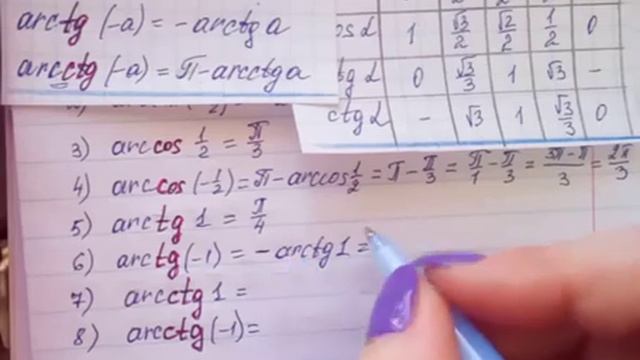 arctg (-a) = -arctg a
arcctg (-a) = π - arcctg a
cos α 1 √3/2 √2/2 1/2 0
tg α 0 √3/3 1 √3 -
ctg α - √3 1 √3/3 0
3) arccos 1/2 = π/3
4) arccos (-1/2) = π - arccos 1/2 = π - π/3 = π/1 - π/3 = 3π-π/3 = 2π/3
5) arctg 1 = π/4
6) arctg (-1) = - arctg 1 =
7) arcctg 1 =
8) arcctg (-1) =